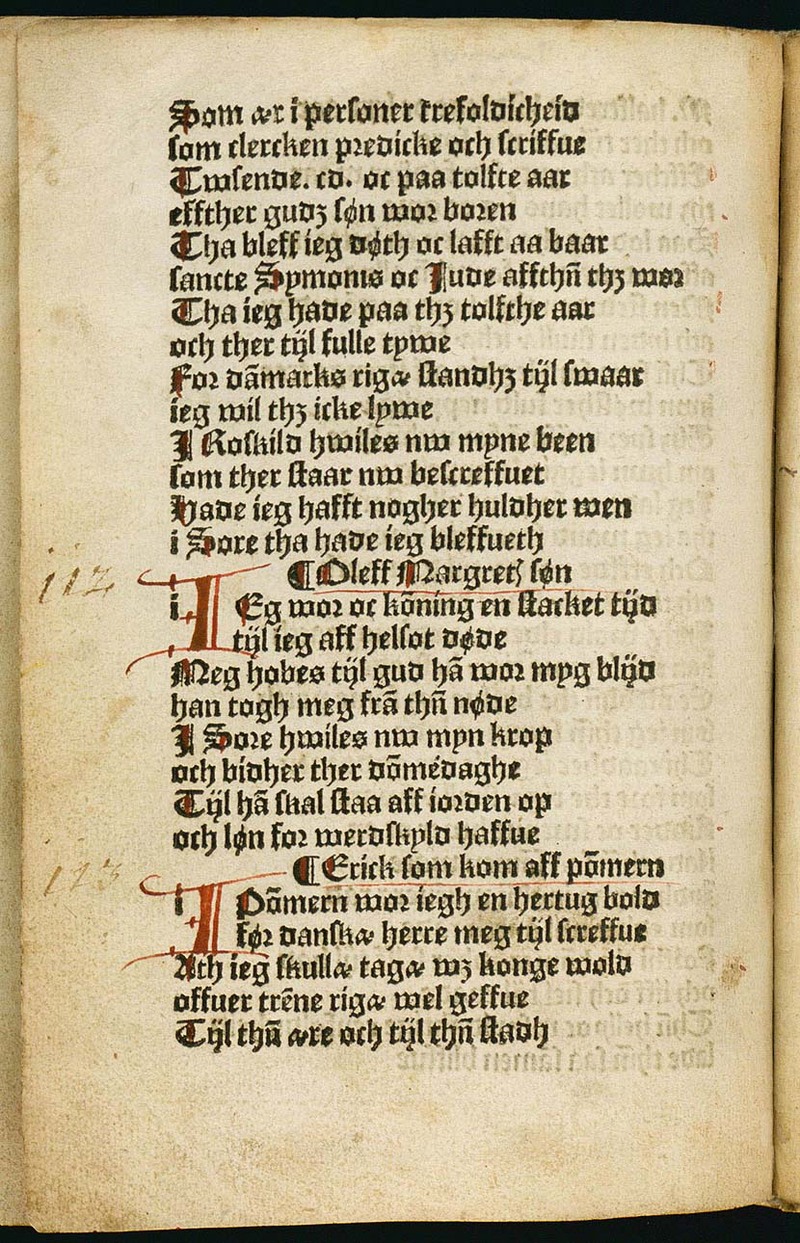 Som ær i personer trefoldicheid
som clercken predicke och scriffue
Twsende. cd. oc paa tolfte aar
effther gudz søn wor boren
Tha bleff ieg døth oc lafft aa baar
sancte Symonis oc Jude affthn̄ thz wor
Tha ieg hade paa thz tolfthe aar
och ther tijl fulle tywe
For dāmarks rigæ standhz tijl swaar
ieg wil thz icke lywe
I Roskild hwiles nw myne been
som ther staar nw bescreffuet
Hade ieg hafft nogher huldher wen
i Sore tha hade ieg bleffueth
¶ Oleff Margretz søn
112
i IEg wor oc kōning en stacket tijd
tijl ieg aff helsot døde
Meg hobes tijl gud hā wor myg blijd
han togh meg frā thn̄ nøde
I Sore hwiles nw myn krop
och bidher ther dōmedaghe
Tijl hā skal staa aff iorden op
och løn for werdskyld haffue
¶ Erick som kom aff pōmern
113
i I Pōmern wor iegh en hertug bold
før danskæ herre meg tijl screffue
Ath ieg skullæ tagæ wz konge wold
offuer trēne rigæ wel geffue
Tijl thn̄ ære och tijl thn̄ stadh